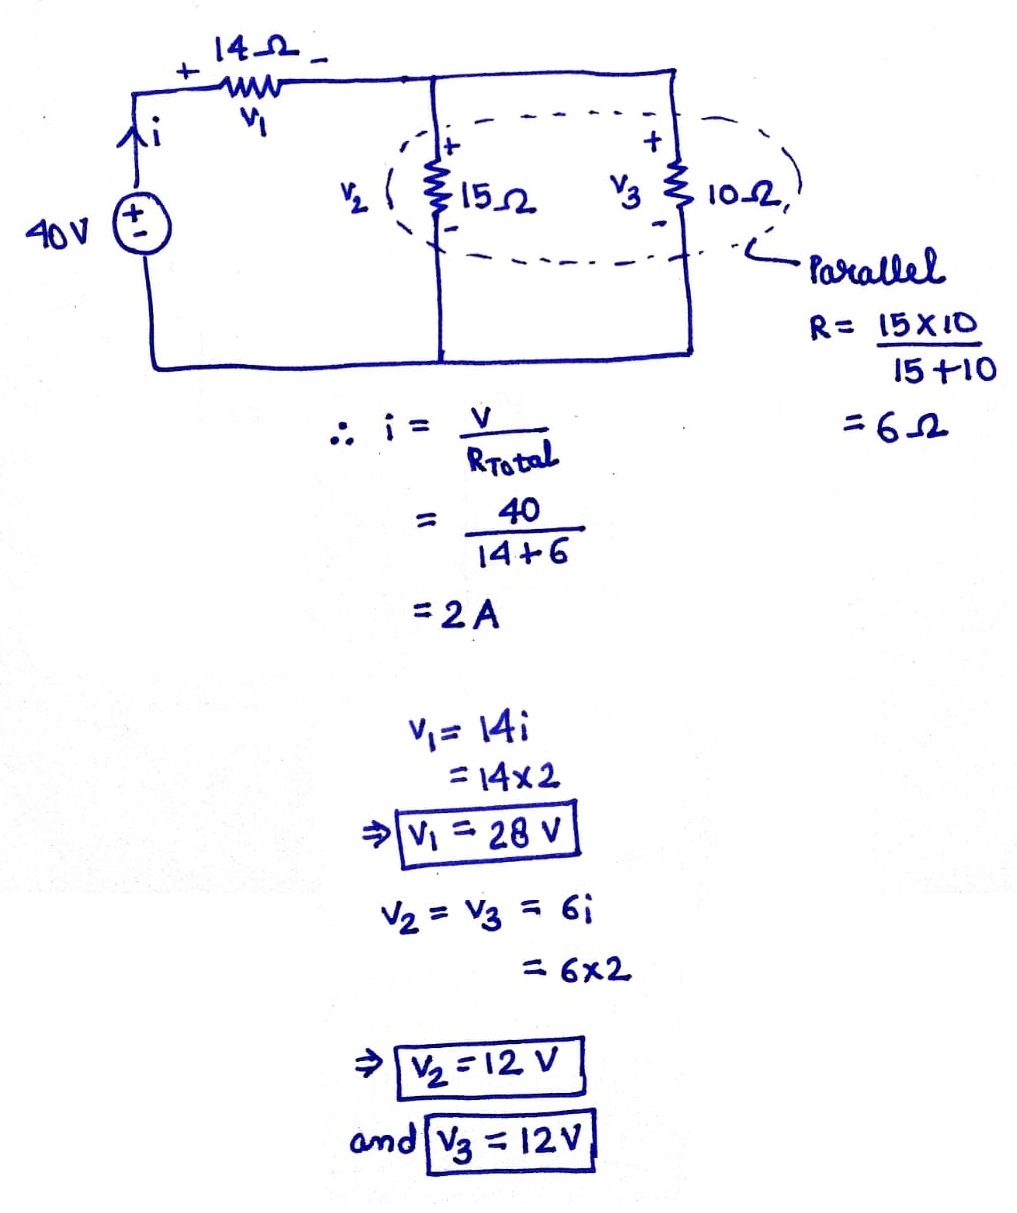 14Ω
+ -
V1
i
+
-
40V
V2
+
15Ω
-
V3
+
10Ω
-
Parallel
R = 15×10
15+10
= 6Ω
∴ i = V
RTotal
= 40
14+6
= 2A
V1 = 14i
= 14×2
⇒ V1 = 28 V
V2 = V3 = 6i
= 6×2
⇒ V2 = 12 V
and V3 = 12V